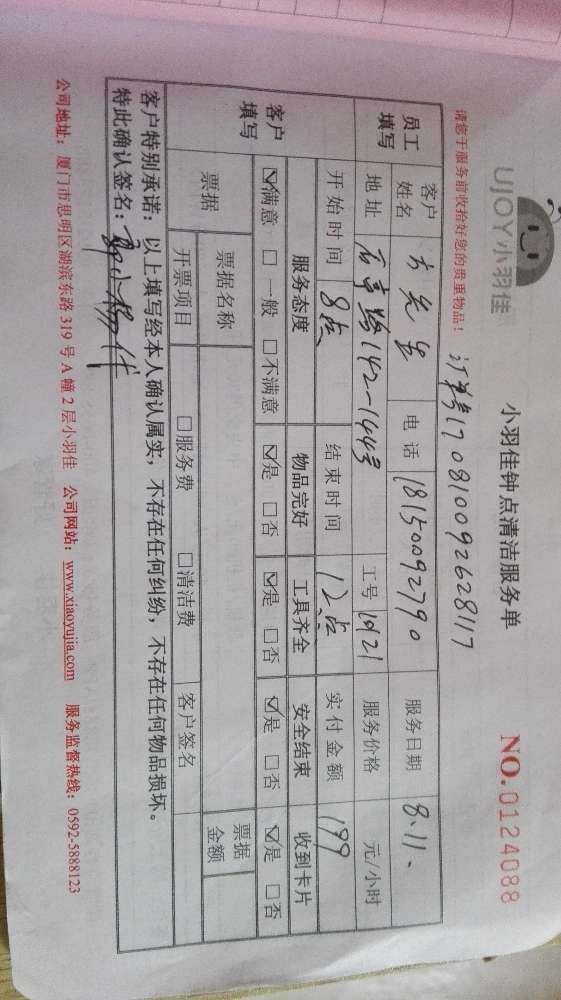 UJOY小羽佳
小羽佳钟点清洁服务单
NO.0124088
请您于服务前收拾好您的贵重物品!
订单号170810092628117
员工填写
客户姓名 方先生 电话 18150092790 服务日期 8.11.
地址 142-144号 工号 1921 服务价格 元/小时
开始时间 8点 结束时间 12点 实付金额 199
客户填写
服务态度 物品完好 工具齐全 安全结束 收到卡片
☑满意 □一般 □不满意 ☑是 □否 ☑是 □否 ☑是 □否 ☑是 □否
票据 票据名称 票据金额
开票项目 □服务费 □清洁费 客户签名
客户特别承诺:以上填写经本人确认属实,不存在任何纠纷,不存在任何物品损坏。
特此确认签名:
公司地址:厦门市思明区湖滨东路319号A幢2层小羽佳 公司网站:www.xiaoyujia.com 服务监督热线:0592-5888123